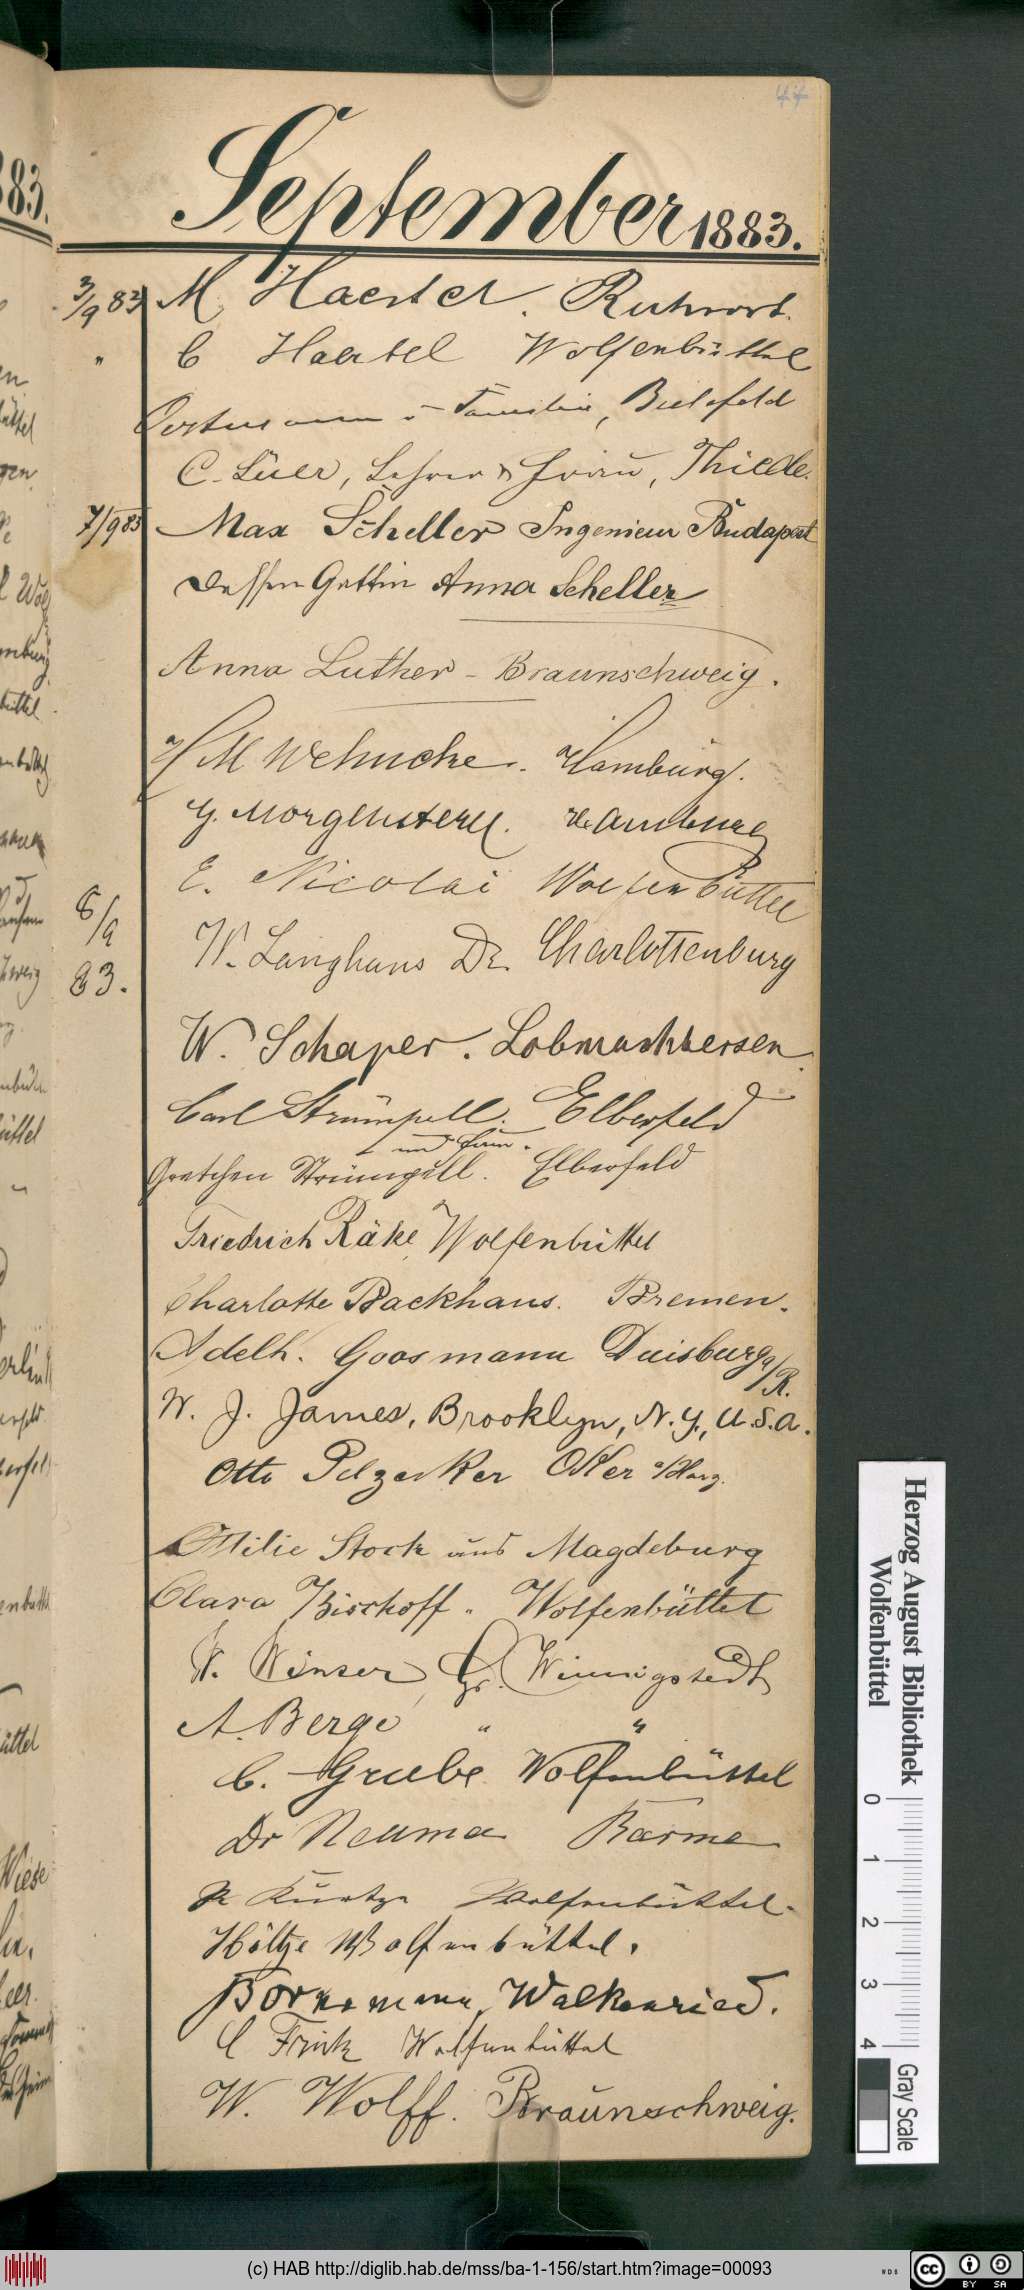 44
September 1883.
3/9 83 M Haertel. Ruhrort.
" C Haertel Wolfenbüttel
Oestmann u Familie, Bielefeld
C. Lüer, Lehrer & Frau, Thiede.
7/9 83 Max Scheller Ingenieur Budapest
dessen Gattin Anna Scheller
Anna Luther - Braunschweig.
H M Wehncke. Hamburg.
G. Morgenstern. Hamburg
E. Nicolai Wolfenbüttel
8/9 83. W. Langhans Dr. Charlottenburg
W. Schaper. Lobmachtersen.
Carl Strümpell. Elberfeld
und Frau.
Gretchen Strümpell. Elberfeld
Friedrich Räke Wolfenbüttel
Charlotte Backhaus. Bremen.
Adelh. Goosmann Duisburg a/R.
W. J. James, Brooklyn, N.Y., U.S.A.
Otto Pelzer Oker a/Harz.
Ottilie Stock und Magdeburg
Clara Bischoff. Wolfenbüttel
W. Winser, Gr. Winnigstedt
A. Berge " "
C. Grube Wolfenbüttel
Dr Neuma Barme
Kuntze Wolfenbüttel.
Höltje Wolfenbüttel.
Bornemann, Walkenried.
C Frick Wolfenbüttel
W. Wolff. Braunschweig.
Herzog August Bibliothek
Wolfenbüttel
0 1 2 3 4
Gray Scale
(c) HAB http://diglib.hab.de/mss/ba-1-156/start.htm?image=00093
WDB
cc BY SA